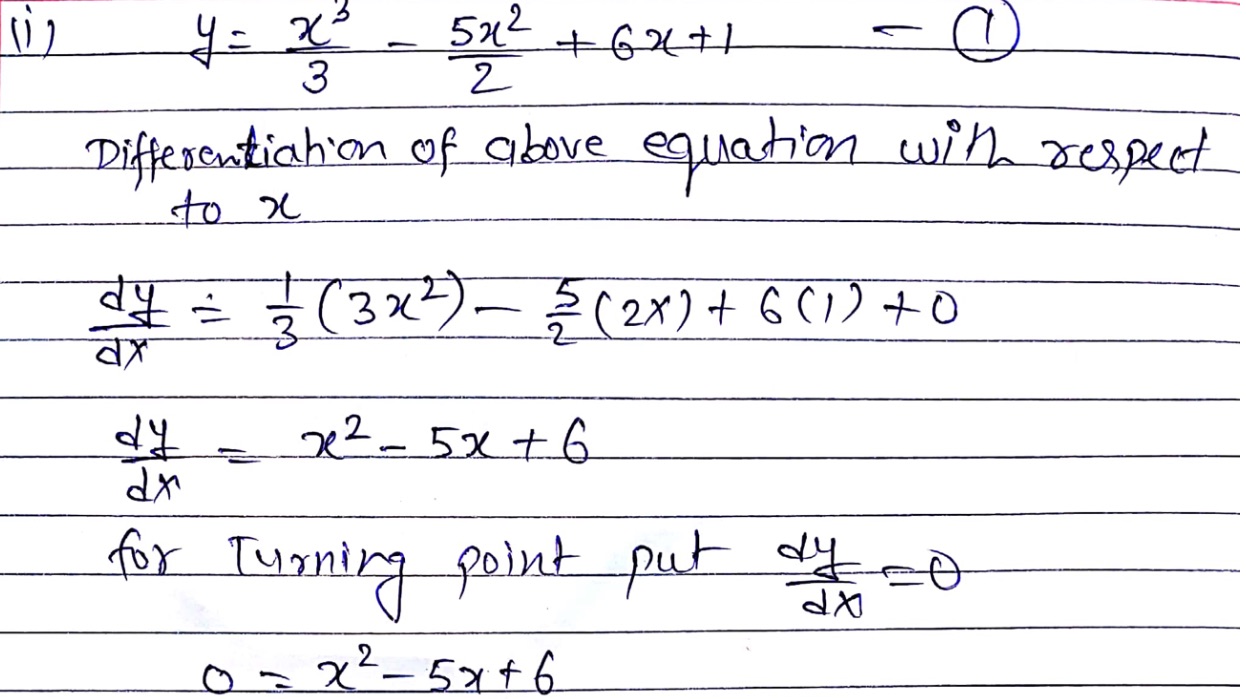 (i) y = x³/3 - 5x²/2 + 6x + 1 - ①
Differentiation of above equation with respect
to x
dy/dx = 1/3 (3x²) - 5/2 (2x) + 6(1) + 0
dy/dx = x² - 5x + 6
for Turning point put dy/dx = 0
0 = x² - 5x + 6